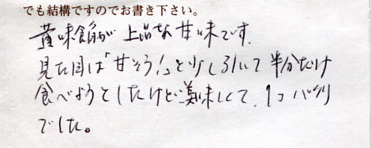 でも結構ですのでお書き下さい。
黄味餡が上品な甘味です。
見た目は「甘そう!」と少し引いて半分だけ
食べようとしたけど美味しくて、1つパクリ
でした。